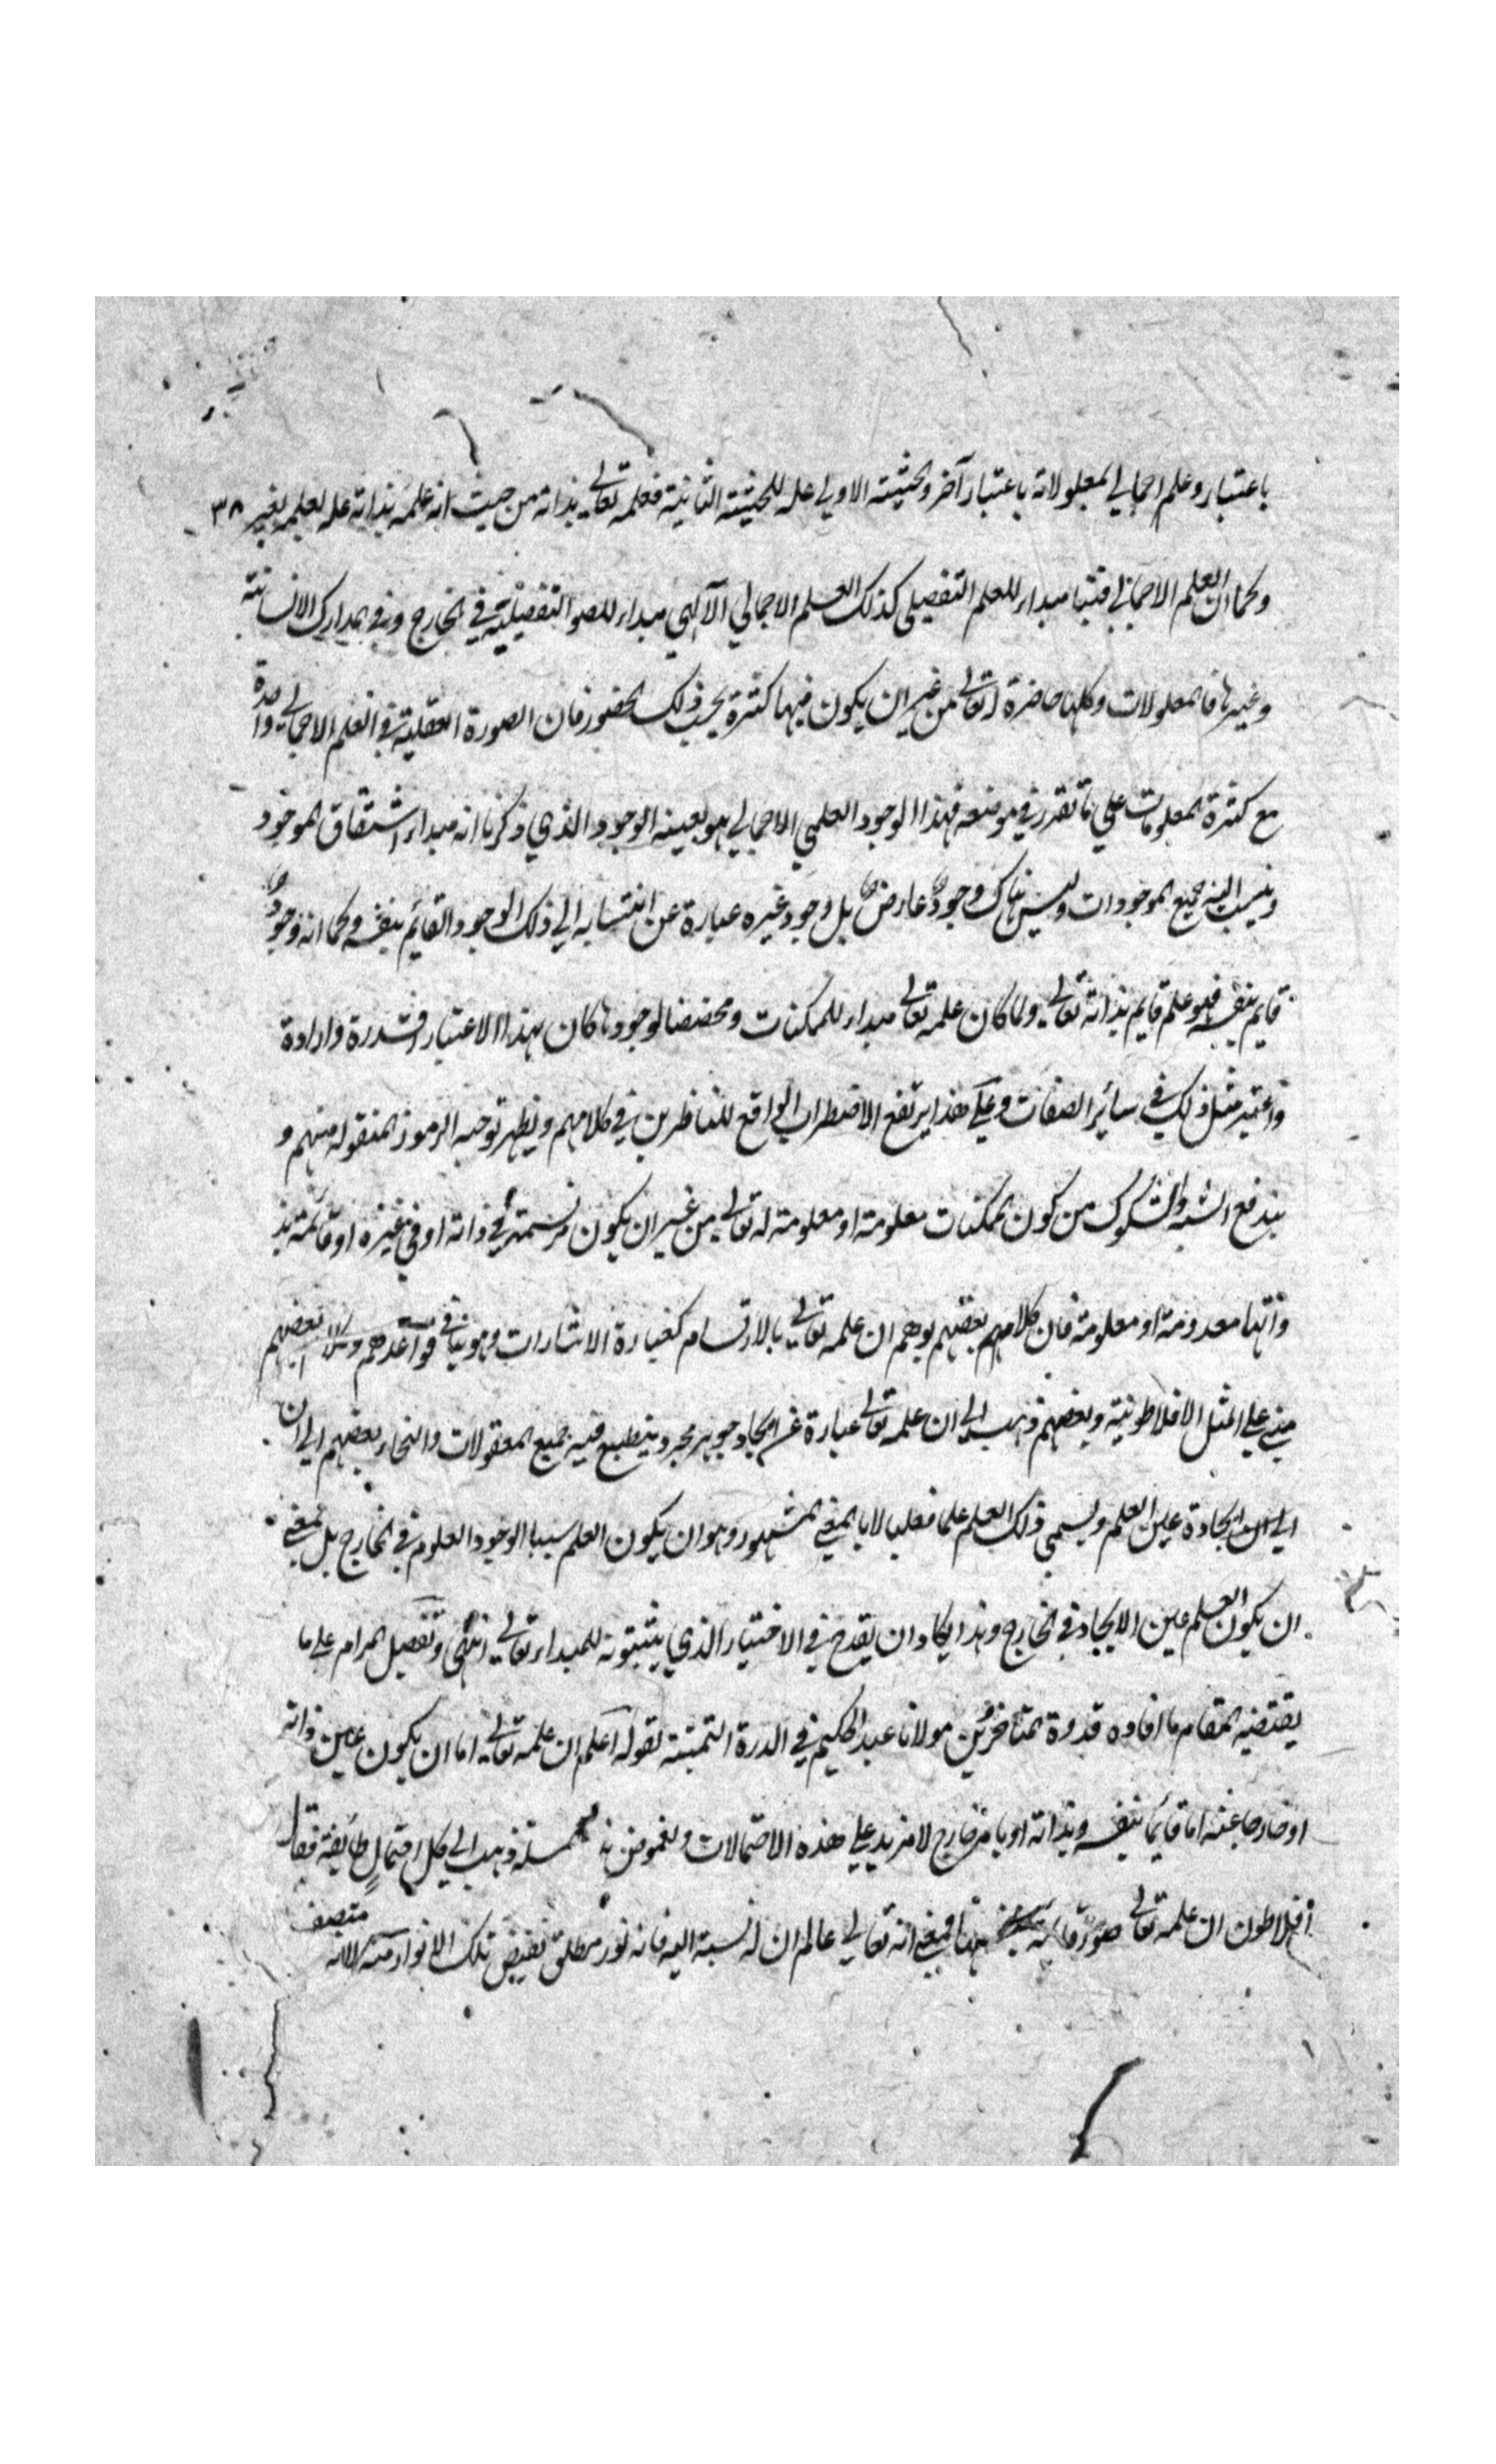 باعتبار وعلم اجمالي لمعلولاته باعتبار آخر والحيثية الاولي علة للحيثية الثانية فعلمه تعالى بذاته من حيث انه علمه بذاته علة لعلمه بغيره ٣٨
وكما ان العلم الاجمالي فينا مبداء للعلم التفصيلي كذلك العلم الاجمالي الآلهي مبداء للصور التفصيلية في الخارج وفي المدارك الانسانية
وغيرها فالمعلولات وكلها حاضرة له تعالى من غير ان يكون فيها كثرة بحسب ذلك الحضور فان الصورة العقلية في العلم الاجمالي واحدة
مع كثرة المعلومات علي ما تقرر في موضعه فهذا الوجود العلمي الاجمالي هو بعينه الوجود الذي ذكرنا انه مبداء اشتقاق الموجود
وينسب اليه جميع الموجودات وليس هناك وجود عارض بل وجود غيره عبارة عن انتسابه الي ذلك الوجود القائم بنفسه وكما انه وجود
قايم بنفسه فهو علم قايم بذاته تعالى ولما كان علمه تعالى مبداء للممكنات ومخصصا لوجودها كان بهذا الاعتبار قدرة وارادة
واعتبر مثل ذلك في سائر الصفات وعلي هذا يرتفع الاضطراب الواقع للناظرين في كلامهم ويظهر توجيه الرموز المنقولة منهم و
يندفع الشبه والشكوك من كون الممكنات معلومة او معلومة له تعالى من غير ان يكون مرتسمة في ذاته او في غيره او قائمة بذ
واتها معدومة او معلومة فان كلام بعضهم يوهم ان علمه تعالى بالارتسام كعبارة الاشارات وهو ينافي قواعدهم وكلام بعضهم
مبني علي المثل الافلاطونية وبعضهم ذهب الي ان علمه تعالى عبارة عن ايجاد جوهر مجرد ينطبع فيه جميع المعقولات والتجاء بعضهم الي ان
ايجاده عين العلم ويسمي ذلك العلم علما فعليا لا بالمعني المشهور وهو ان يكون العلم سببا لوجود المعلوم في الخارج بل بمعني
ان يكون العلم عين الايجاد في الخارج وهذا يكاد ان يقدح في الاختيار الذي يثبتونه للمبداء تعالى انتهى وتفصيل المرام علي ما
يقتضيه المقام ما افاده قدوة المتاخرين مولانا عبد الحكيم في الدرة الثمينة بقوله اعلم ان علمه تعالى اما ان يكون عين ذاته
او خارجا عنه اما قائما بنفسه وبذاته او بامر خارج لا مزيد علي هذه الاحتمالات ولغموض المسئلة ذهب الي كل احتمال طائفة فقال
افلاطون ان علمه تعالى صور قائمة بذاتها فمعني انه تعالى عالم ان له نسبة اليه فانه نور مطلق تفيض تلك الانوار منه لا انه متصف